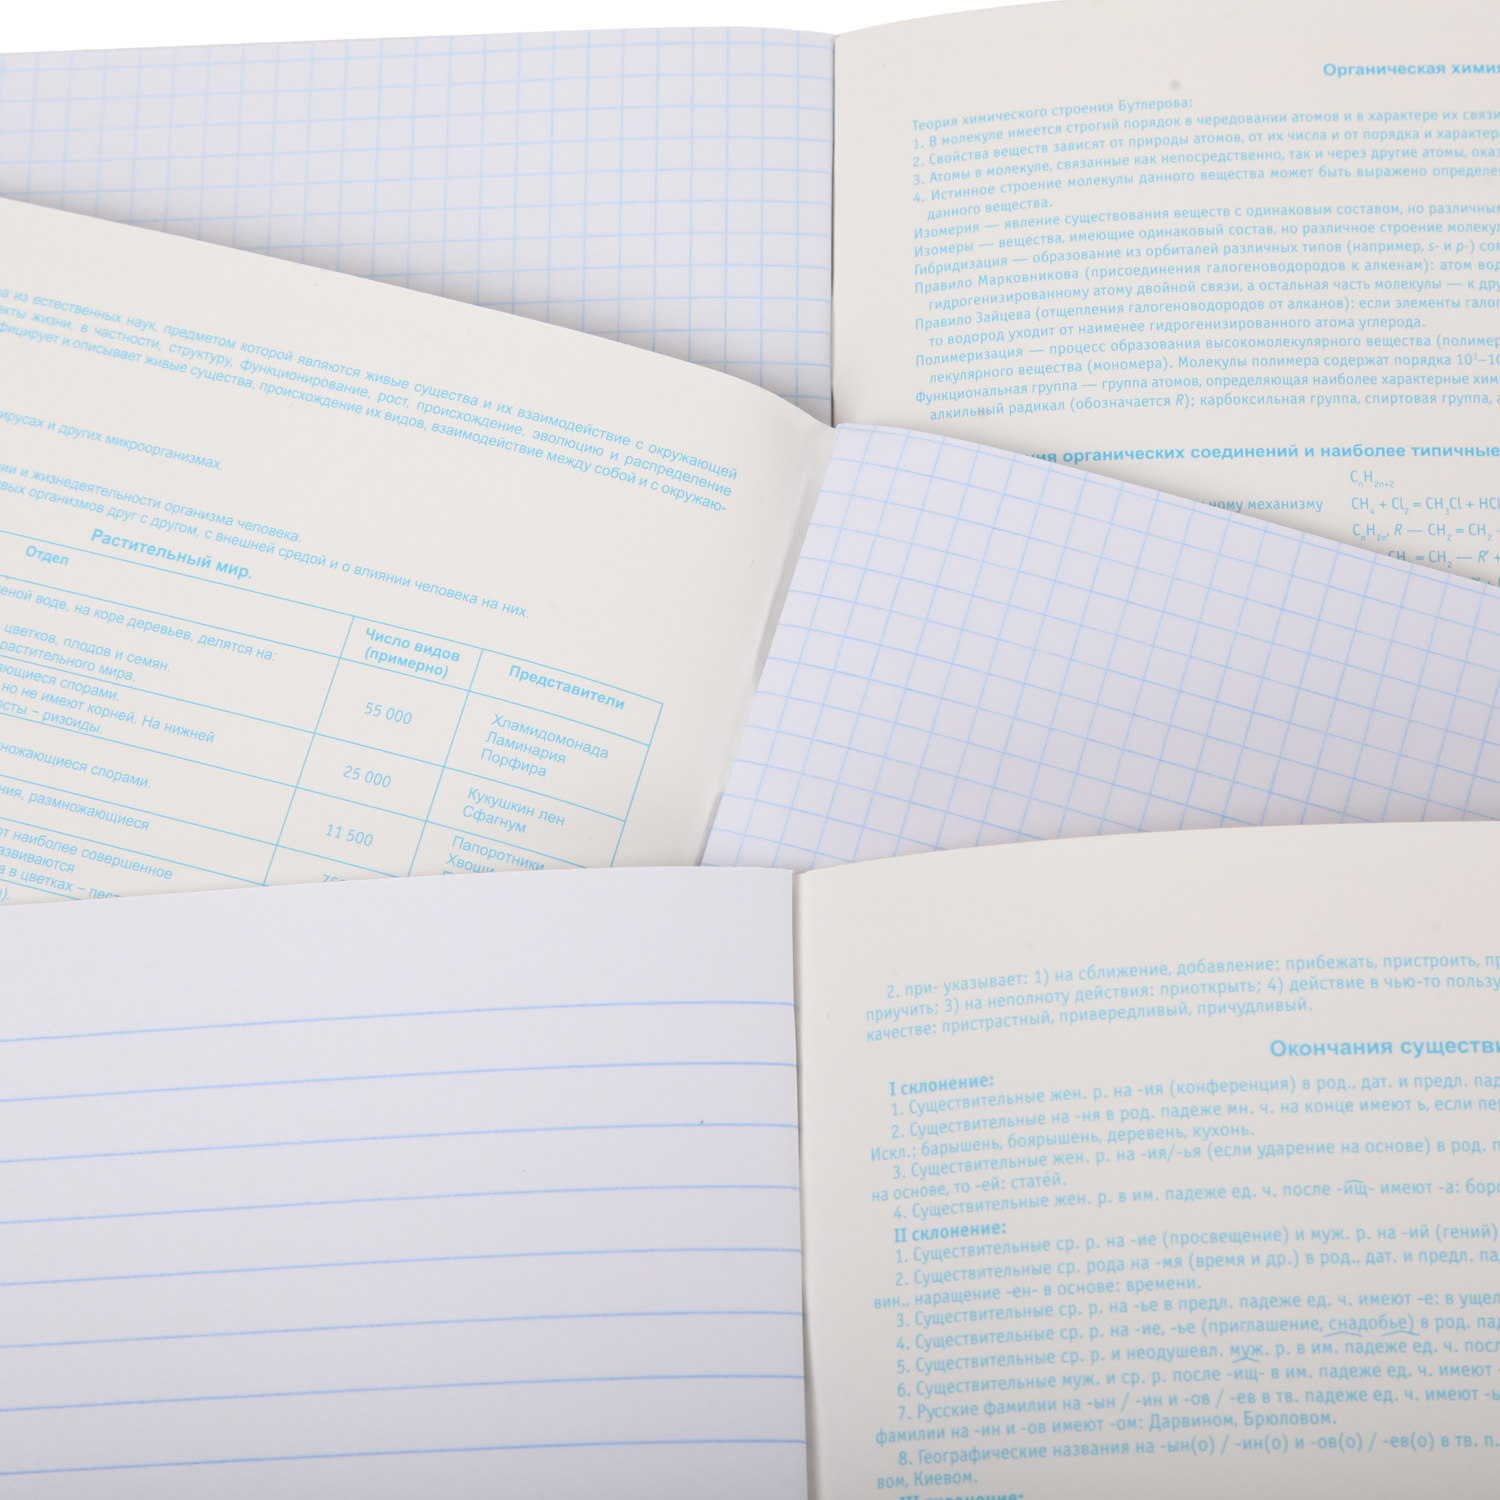 Органическая химия
Теория химического строения Бутлерова:
1. В молекуле имеется строгий порядок в чередовании атомов и в характере их связи
2. Свойства веществ зависят от природы атомов, от их числа и от порядка и характер
3. Атомы в молекуле, связанные как непосредственно, так и через другие атомы, оказ
4. Истинное строение молекулы данного вещества может быть выражено определе
данного вещества.
Изомерия — явление существования веществ с одинаковым составом, но различным
Изомеры — вещества, имеющие одинаковый состав, но различное строение молекул
Гибридизация — образование из орбиталей различных типов (например, s- и p-) сов
Правило Марковникова (присоединения галогеноводородов к алкенам): атом вод
гидрогенизированному атому двойной связи, а остальная часть молекулы — к дру
Правило Зайцева (отщепления галогеноводородов от алканов): если элементы галог
то водород уходит от наименее гидрогенизированного атома углерода.
Полимеризация — процесс образования высокомолекулярного вещества (полимер
лекулярного вещества (мономера). Молекулы полимера содержат порядка 10³–10
Функциональная группа — группа атомов, определяющая наиболее характерные хим
алкильный радикал (обозначается R); карбоксильная группа, спиртовая группа, а
ия органических соединений и наиболее типичные
CₙH₂ₙ₊₂
ному механизму CH₄ + Cl₂ = CH₃Cl + HCl
CₙH₂ₙ, R — CH₂ = CH₂
CH₂ = CH₂ — R' +
а из естественных наук, предметом которой являются живые существа и их взаимодействие с окружающей
екты жизни, в частности, структуру, функционирование, рост, происхождение, эволюцию и распределение
фицирует и описывает живые существа, происхождение их видов, взаимодействие между собой и с окружаю-
ирусах и других микроорганизмах.
ии и жизнедеятельности организма человека.
вых организмов друг с другом, с внешней средой и о влиянии человека на них.
Растительный мир.
Отдел
Число видов
(примерно)
Представители
еной воде, на коре деревьев, делятся на:
цветков, плодов и семян.
растительного мира.
55 000
Хламидомонада
Ламинария
Порфира
ающиеся спорами.
но не имеют корней. На нижней
осты – ризоиды.
25 000
Кукушкин лен
Сфагнум
ножающиеся спорами.
11 500
Папоротники
Хвощи
ния, размножающиеся
от наиболее совершенное
азвиваются
а в цветках – пест
).
2. при- указывает: 1) на сближение, добавление: прибежать, пристроить, пр
приучить; 3) на неполноту действия: приоткрыть; 4) действие в чью-то пользу
качестве: пристрастный, привередливый, причудливый.
Окончания существи
I склонение:
1. Существительные жен. р. на -ия (конференция) в род., дат. и предл. пад
2. Существительные на -ня в род. падеже мн. ч. на конце имеют ь, если пер
Искл.: барышень, боярышень, деревень, кухонь.
3. Существительные жен. р. на -ия/-ья (если ударение на основе) в род. п
на основе, то -ей: статéй.
4. Существительные жен. р. в им. падеже ед. ч. после -ищ- имеют -а: боро
II склонение:
1. Существительные ср. р. на -ие (просвещение) и муж. р. на -ий (гений)
2. Существительные ср. рода на -мя (время и др.) в род., дат. и предл. па
вин., наращение -ен- в основе: времени.
3. Существительные ср. р. на -ье в предл. падеже ед. ч. имеют -е: в ущел
4. Существительные ср. р. на -ие, -ье (приглашение, снадобье) в род. пад
5. Существительные ср. р. и неодушевл. муж. р. в им. падеже ед. ч. посл
6. Существительные муж. и ср. р. после -ищ- в им. падеже ед. ч. имеют -
7. Русские фамилии на -ын / -ин и -ов / -ев в тв. падеже ед. ч. имеют -ы
фамилии на -ин и -ов имеют -ом: Дарвином, Брюловом.
8. Географические названия на -ын(о) / -ин(о) и -ов(о) / -ев(о) в тв. п.
вом, Киевом.
III склонение: